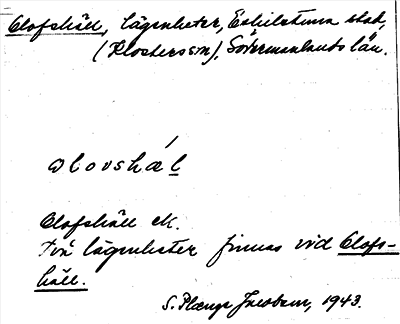 Olofshäll, lägenheter, Eskilstuna stad,
(Klosters sn), Södermanlands län.
olovshǽl
Olofshäll ek.
Två lägenheter finnas vid Olofs-
häll.
S. Plænge Jacobson, 1943.